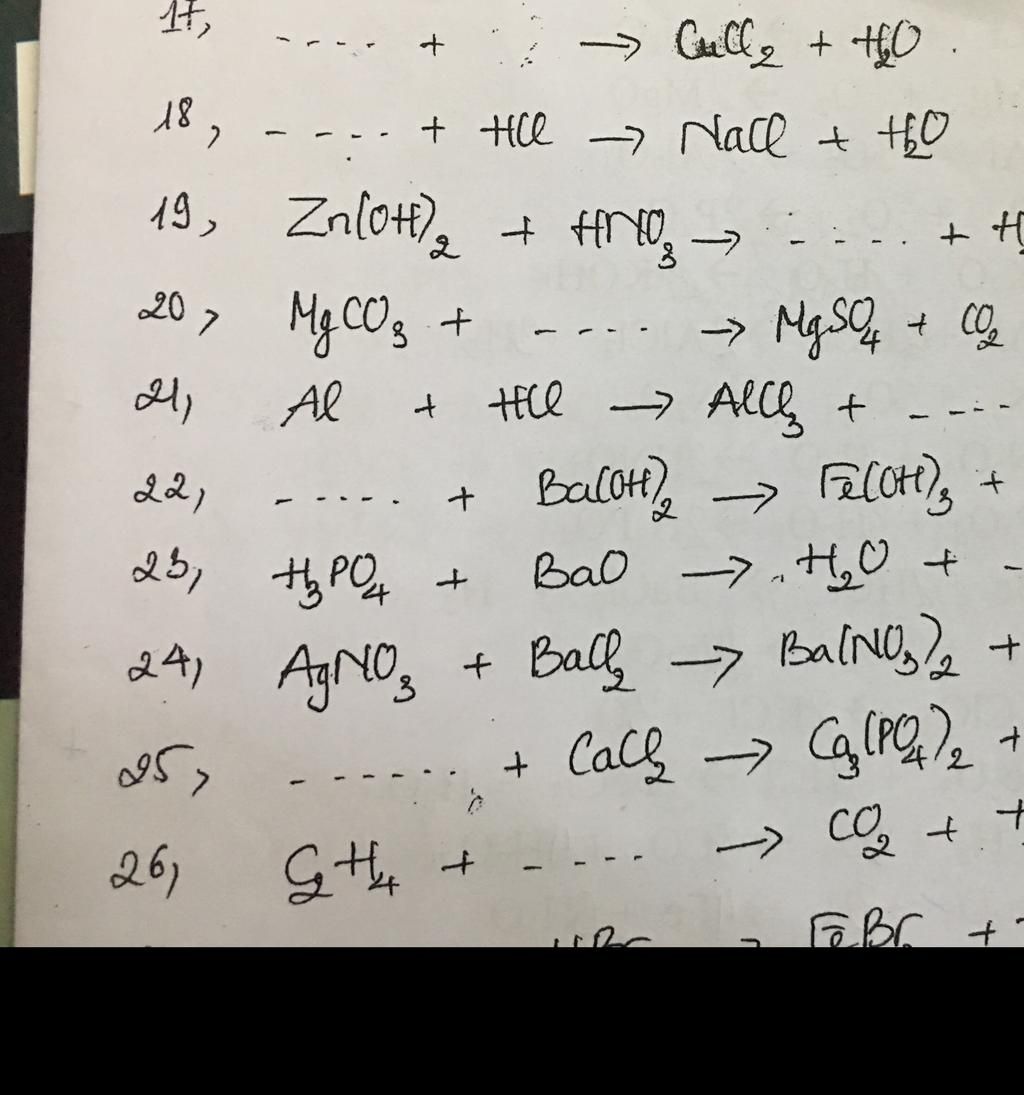 17, .... + → CuCl2 + H2O .
18, ----.. + HCl → NaCl + H2O
19, Zn(OH)2 + HNO3 → ..... + H
20, MgCO3 + ---- → MgSO4 + CO2
21, Al + HCl → AlCl3 + ----
22, ..... + Ba(OH)2 → Fe(OH)3 +
23, H3PO4 + BaO → H2O + -
24, AgNO3 + BaCl2 → Ba(NO3)2 +
25, ....... + CaCl2 → Ca3(PO4)2 +
26, C2H4 + ----- → CO2 +